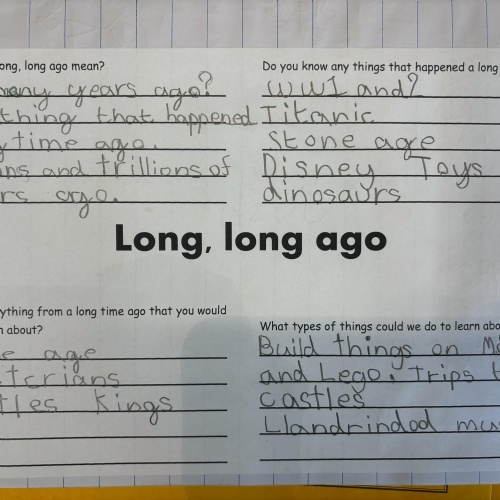 ong, long ago mean?
many years ago?
thing that happened
time ago.
ns and trillions of
rs ago.
Do you know any things that happened a long
WW1 and2
Titanic
Stone age
Disney Toys
dinosaurs
Long, long ago
ything from a long time ago that you would
n about?
e age
tles Kings
What types of things could we do to learn abo
Build things on
and Lego. Trips t
castles
Llandrindod mu